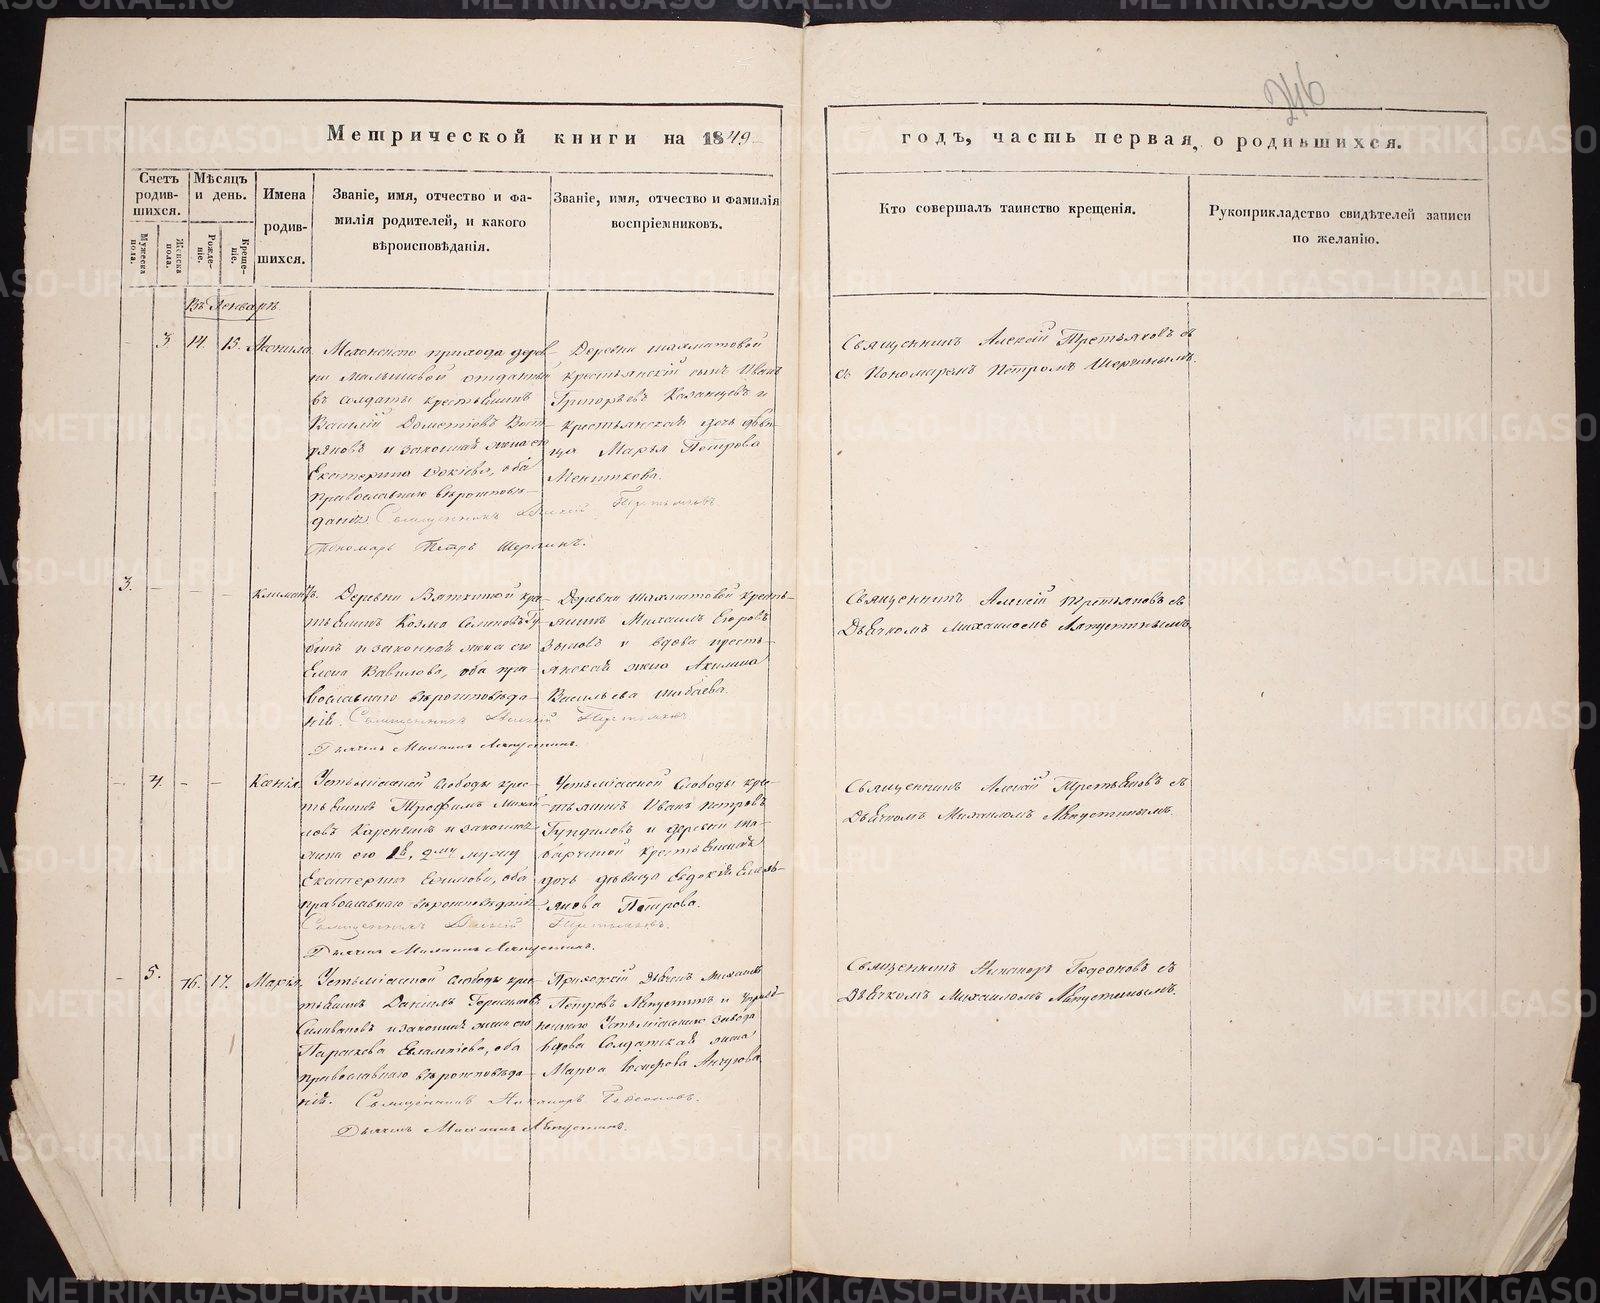 246
Метрической книги на 1849
годъ, часть первая, о родившихся.
Счетъ родив-шихся.
Мужеска пола.
Женска пола.
Мѣсяцъ и день.
Рожде-ніе.
Креще-ніе.
Имена
родив-
шихся.
Званіе, имя, отчество и фа-
милія родителей, и какого
вѣроисповѣданія.
Званіе, имя, отчество и фамилія
воспріемниковъ.
Кто совершалъ таинство крещенія.
Рукоприкладство свидѣтелей записи
по желанію.
Въ Январѣ.
3 14. 15.
прихода дерев-
ни отданный
въ солдаты крестьянинъ
Василій
и законная жена его
Екатерина оба
православнаго вѣроисповѣ-
данія. Священникъ Алексій Третьяковъ.
Пономарь Петръ
Деревни Шахматовой
крестьянскій сынъ Иванъ
Григорьевъ Казанцевъ и
крестьянская дочь дѣви-
ца Марья Петрова
Менщикова.
Священникъ Алексій Третьяковъ съ
съ Пономаремъ Петромъ
3. - - -
Климентъ. Деревни кре-
стьянинъ Козма Семеновъ
и законная жена его
Елена Вавилова, оба пра-
вославнаго вѣроисповѣда-
нія. Священникъ Алексій Третьяковъ
Дьячекъ Михаилъ Августинъ.
Деревни Шахматовой кресть-
янинъ Михаилъ Егоровъ
Зыковъ и вдова кресть-
янская жена Акилина
Васильева Шибаева.
Священникъ Алексій Третьяковъ съ
Дьячкомъ Михаиломъ Августинымъ.
- 4. - -
Ксенія. Устьміасской слободы крес-
тьянинъ Трофимъ Михай-
ловъ и законная
жена его 1й, 2му мужу
Екатерина Ефимова, оба
православнаго вѣроисповѣданія.
Священникъ Алексій Третьяковъ.
Дьячекъ Михаилъ Августинъ.
Устьміасской слободы кре-
стьянинъ Иванъ Петровъ
Гундиловъ и деревни
крестьянская
дочь дѣвица Евдокія Емель-
янова Петрова.
Священникъ Алексій Третьяковъ съ
Дьячкомъ Михаиломъ Августинымъ.
- 5. 16. 17.
Марія. Устьміасской слободы крес-
тьянинъ Даніилъ Герасимовъ
Селивановъ и законная жена его
Параскева Евлампіева, оба
православнаго вѣроисповѣда-
нія. Священникъ Никаноръ Гедеоновъ.
Дьячекъ Михаилъ Августинъ.
Приходскій Дьячекъ Михаилъ
Петровъ Августинъ и
Устьміасскаго завода
вдова Солдатская жена
Марѳа
Священникъ Никаноръ Гедеоновъ съ
Дьячкомъ Михаиломъ Августинымъ.
METRIKI.GASO-URAL.RU